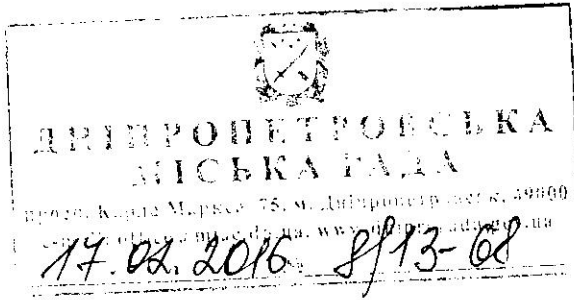 ДНІПРОПЕТРОВСЬКА
МІСЬКА РАДА
просп. Карла Маркса, 75, м. Дніпропетровськ, 49000
17.02.2016 8/13-68